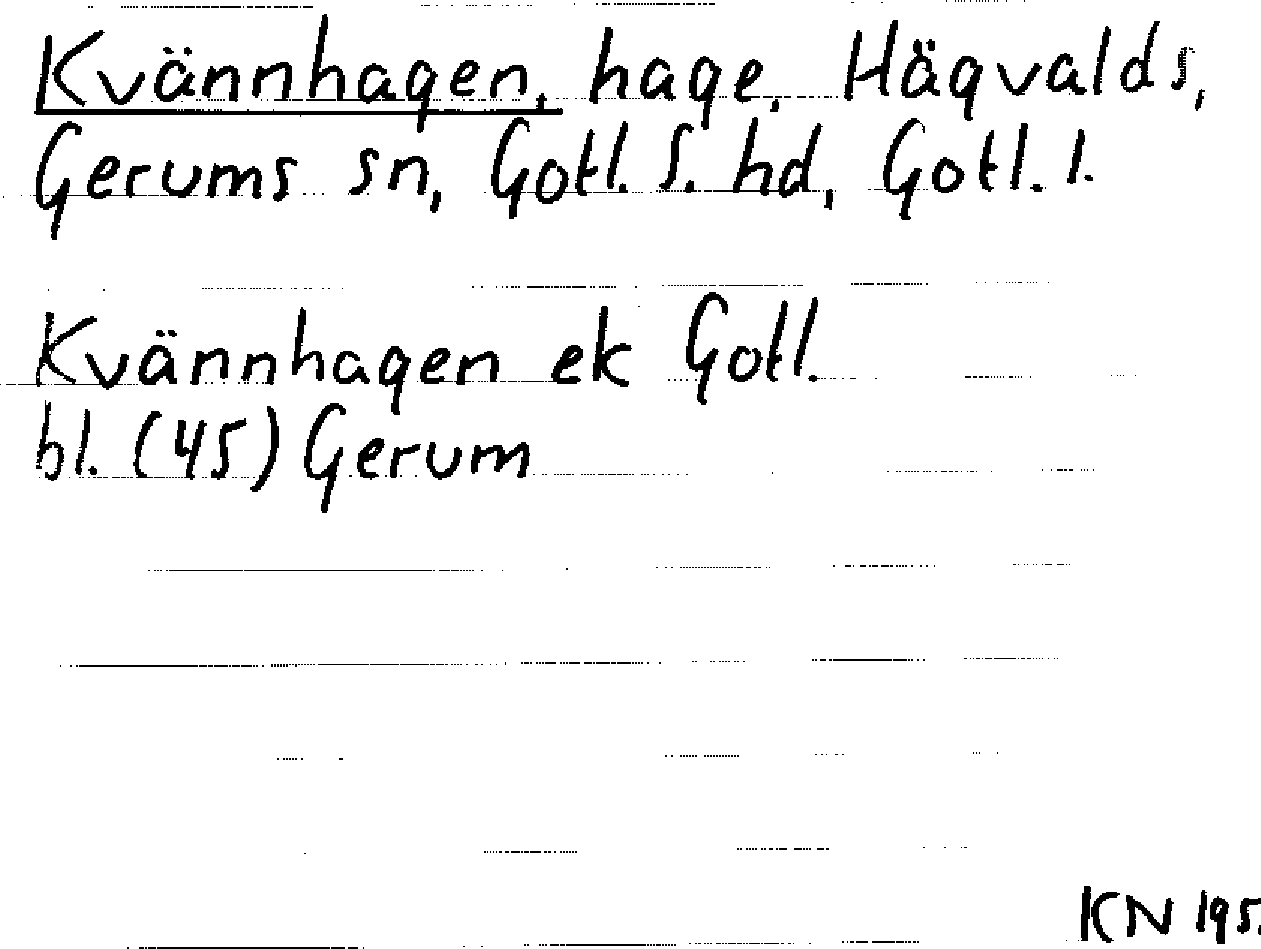 Kvännhagen, hage, Hägvalds,
Gerums sn, Gotl. S. hd, Gotl. l.
Kvännhagen ek Gotl.
bl. (45) Gerum
KN 195.